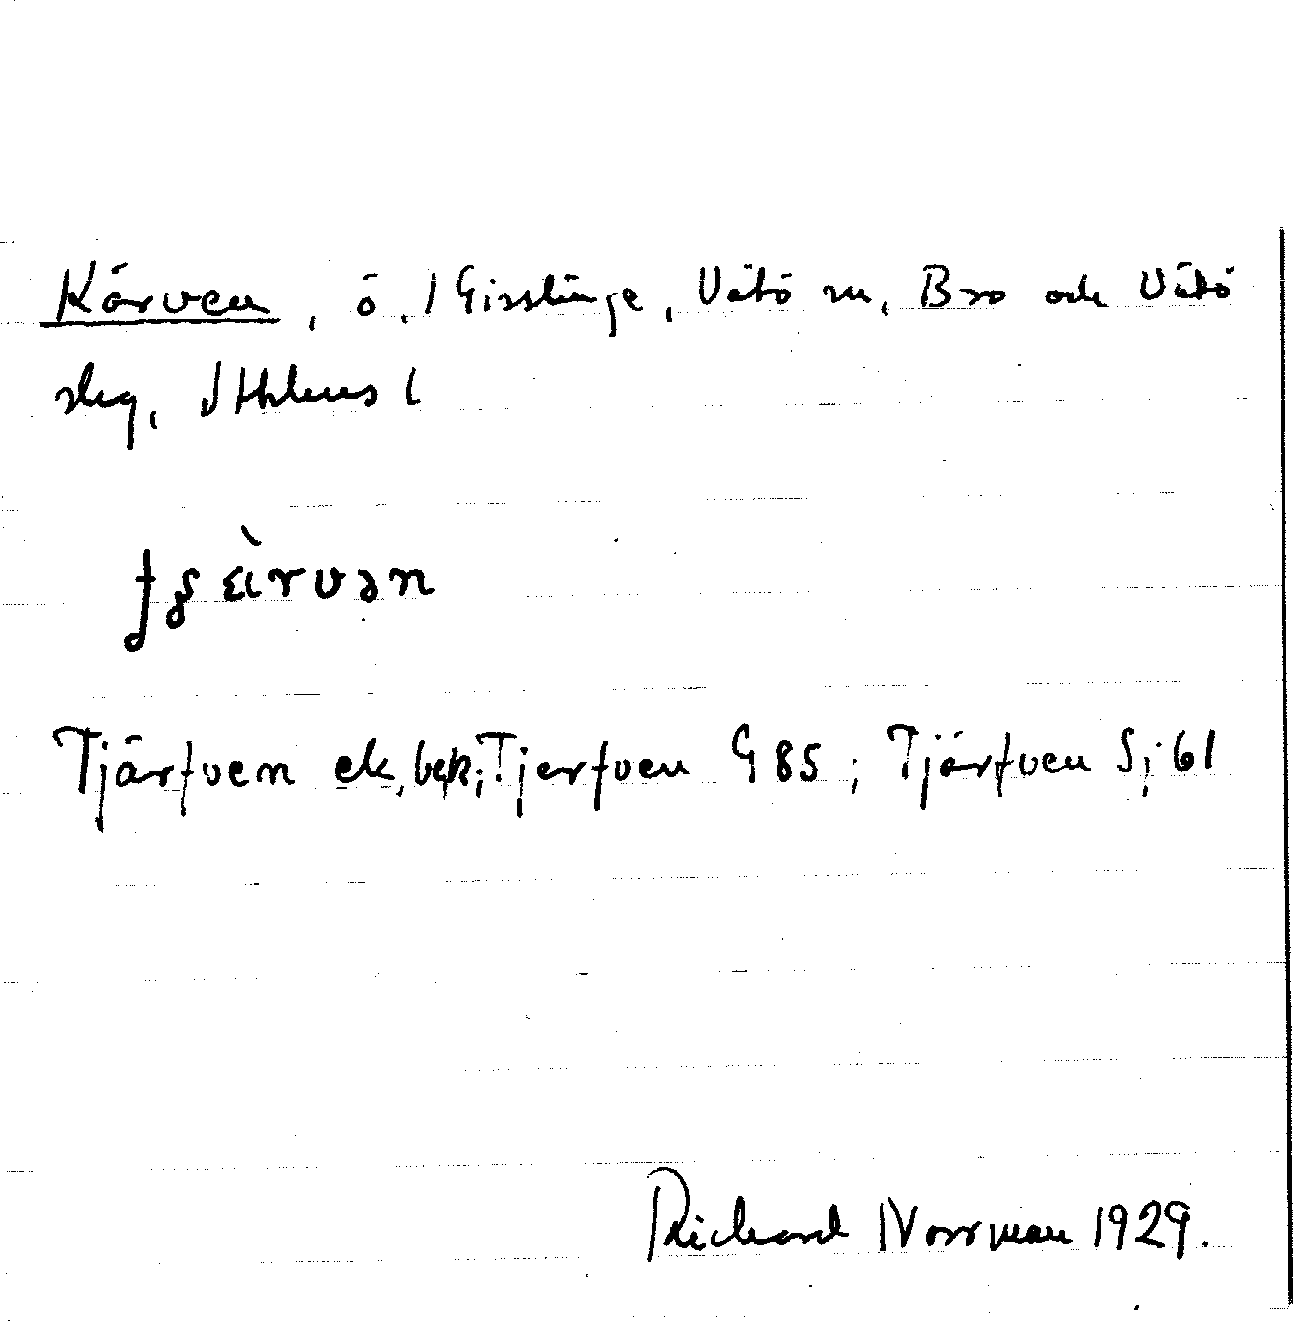 Kärven, ö, 1 Gisslinge, Vätö sn, Bro och Vätö
slg, Sthlms l
Tjärfven ek, bek; Tjerfven G 85; Tjärfven Sj 61
Richard Norrman 1929.